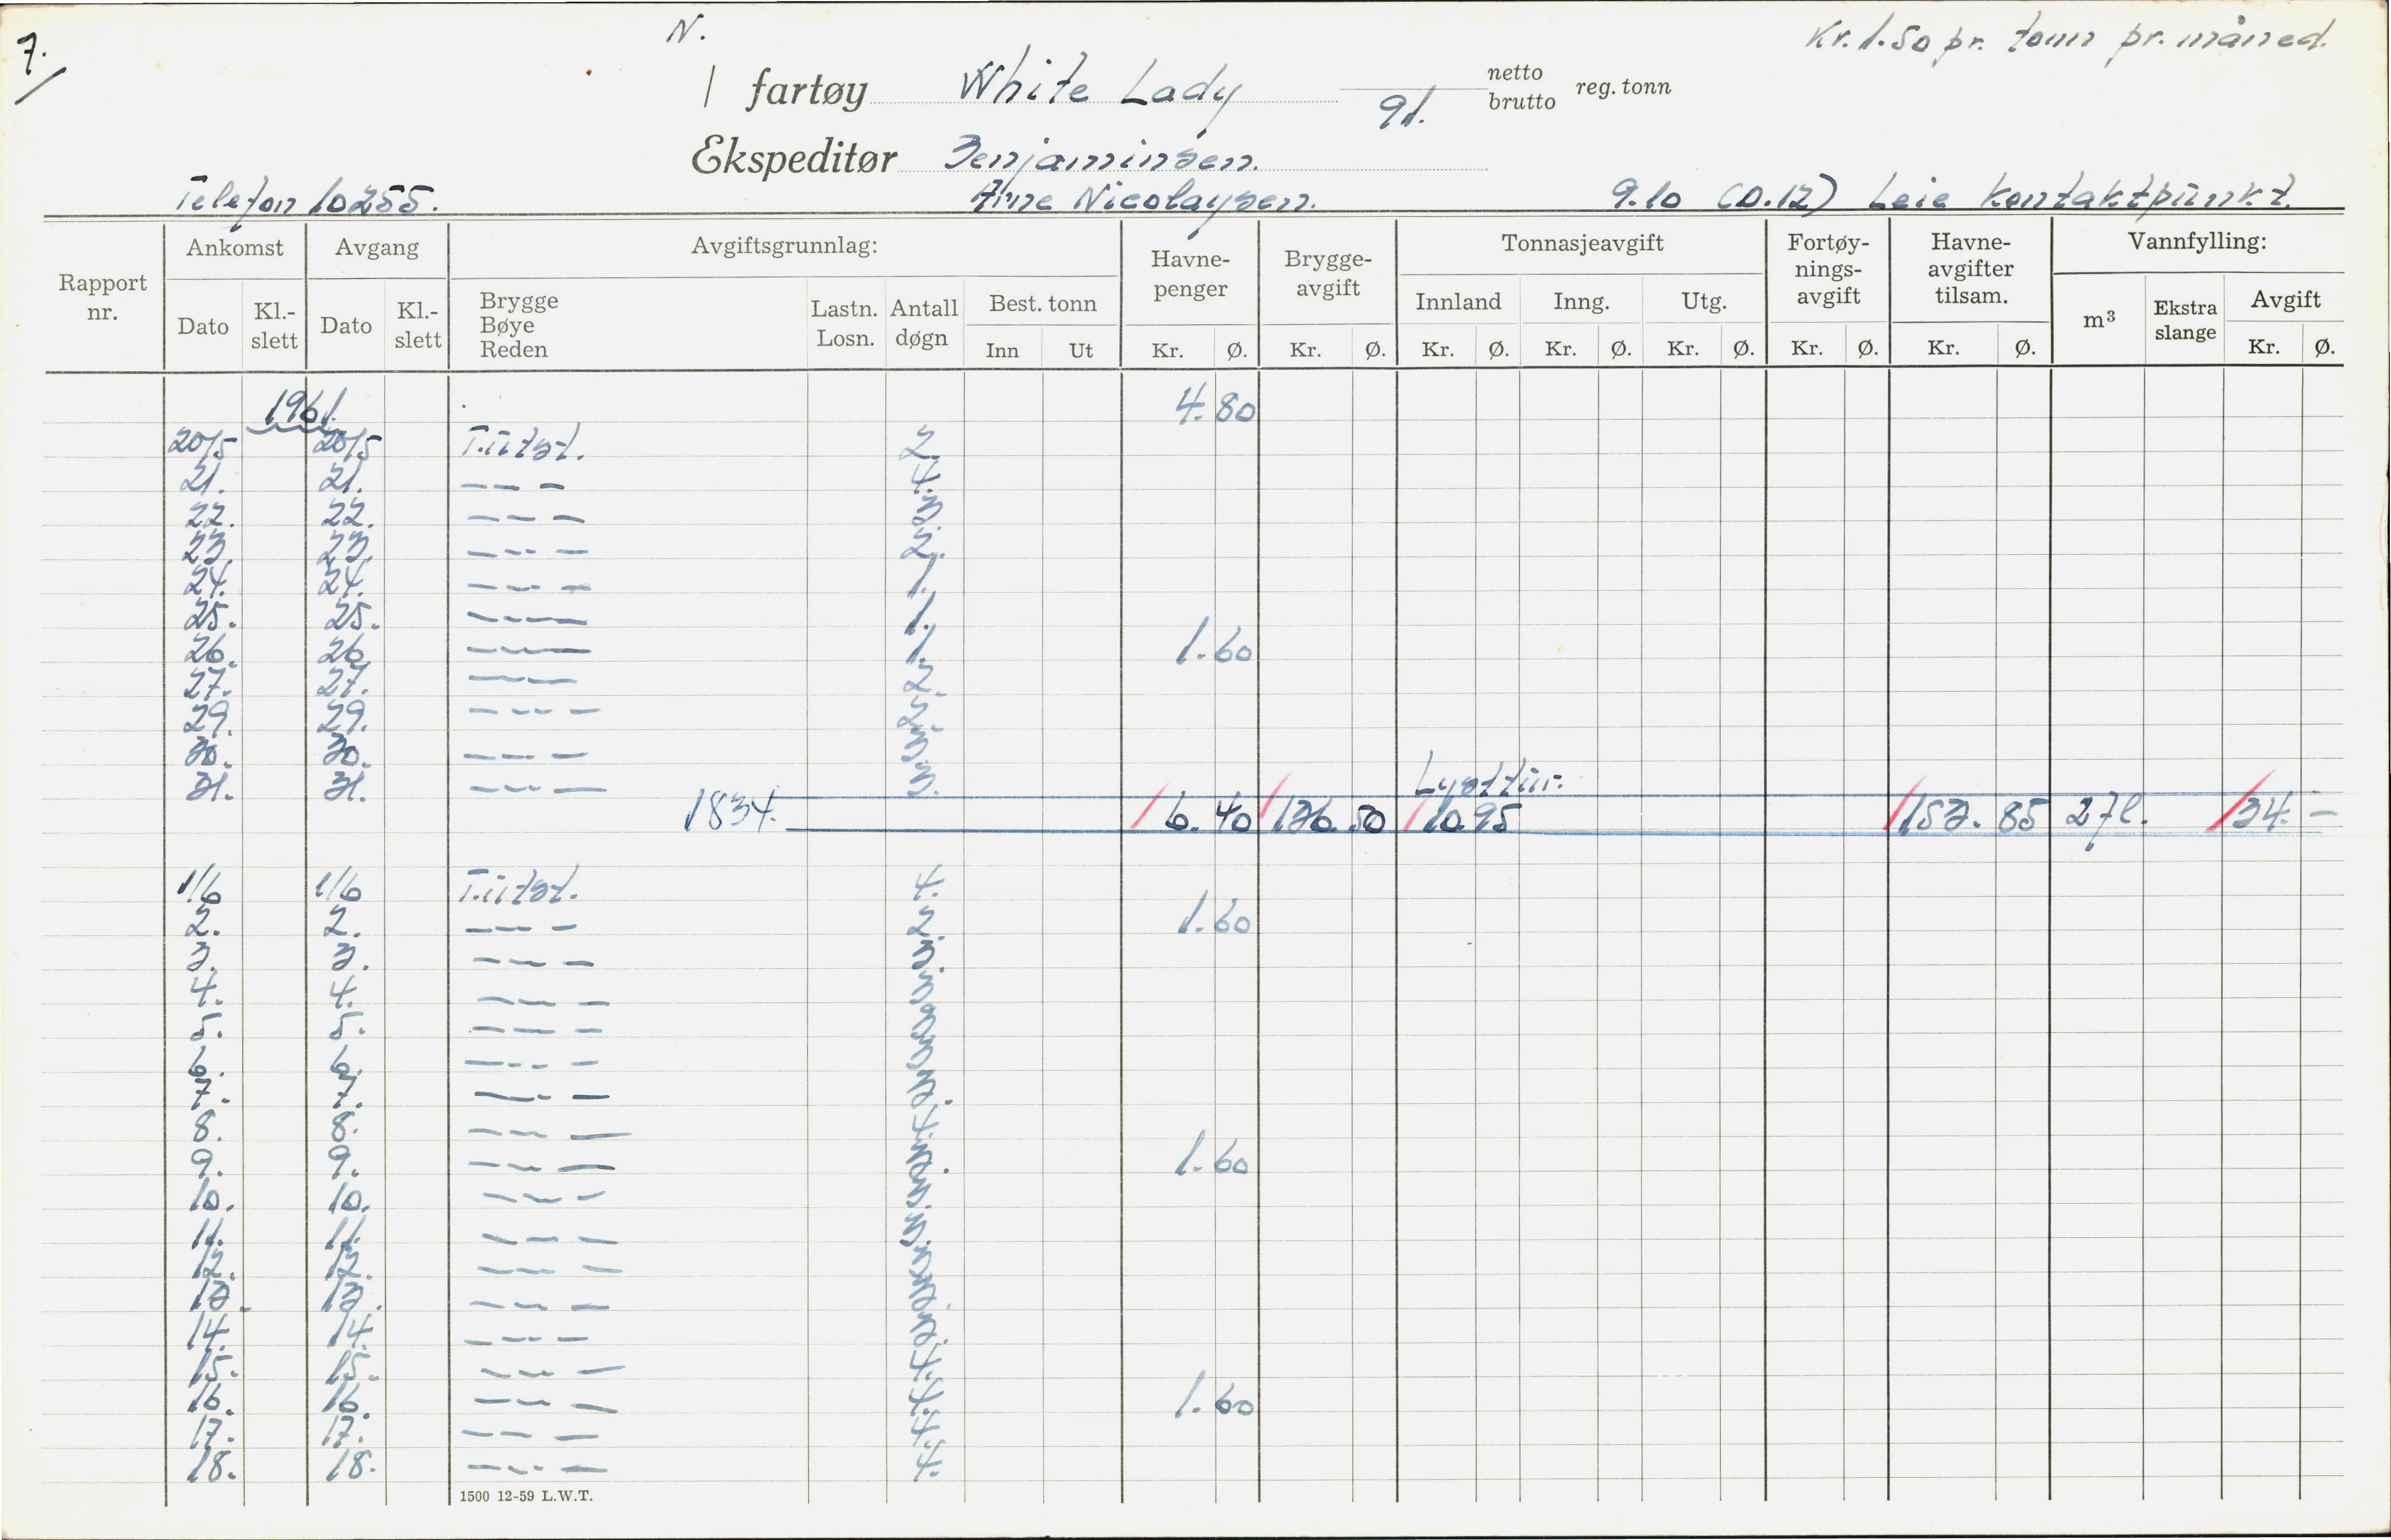 7.
N.
Kr. 1.50 pr. tonn pr. måned.
/ fartøy White Lady 91. netto brutto reg. tonn
Ekspeditør Benjaminsen.
Telefon 10255. Arne Nicolaysen. 9.10 (D.12) Leie Kontaktpunkt.
Rapport nr. Ankomst Avgang Avgiftsgrunnlag: Havne-penger Brygge-avgift Tonnasjeavgift Fortøy-nings-avgift Havne-avgifter tilsam. Vannfylling:
Dato Kl.-slett Dato Kl.-slett Brygge Bøye Reden Lastn. Losn. Antall døgn Best. tonn Innland Inng. Utg. m³ Ekstra slange Avgift
Inn Ut Kr. Ø. Kr. Ø. Kr. Ø. Kr. Ø. Kr. Ø. Kr. Ø. Kr. Ø. Kr. Ø.
1961. 4.80
20/5 20/5 T.utst. 2.
21. 21. — — — 4.
22. 22. — — — 3.
23. 23. — — — 2.
24. 24. — — — 1.
25. 25. — — — 1.
26. 26. — — — 1. 1.60
27. 27. — — — 2.
29. 29. — — —
30. 30. — — — 3.
31. 31. — — — 3.
Lysttur.
1834. 6.40 136.50 10.95 153.85 27l. 34.—
1/6 1/6 T.utst. 4.
2. 2. — — — 2. 1.60
3. 3. — — — 3.
4. 4. — — —
5. 5. — — —
6. 6. — — —
7. 7. — — — 3.
8. 8. — — — 4.
9. 9. — — — 3. 1.60
10. 10. — — —
11. 11. — — — 3.
12. 12. — — —
13. 13. — — —
14. 14. — — —
15. 15. — — — 4.
16. 16. — — — 4. 1.60
17. 17. — — — 4.
18. 18. — — — 4.
1500 12-59 L.W.T.